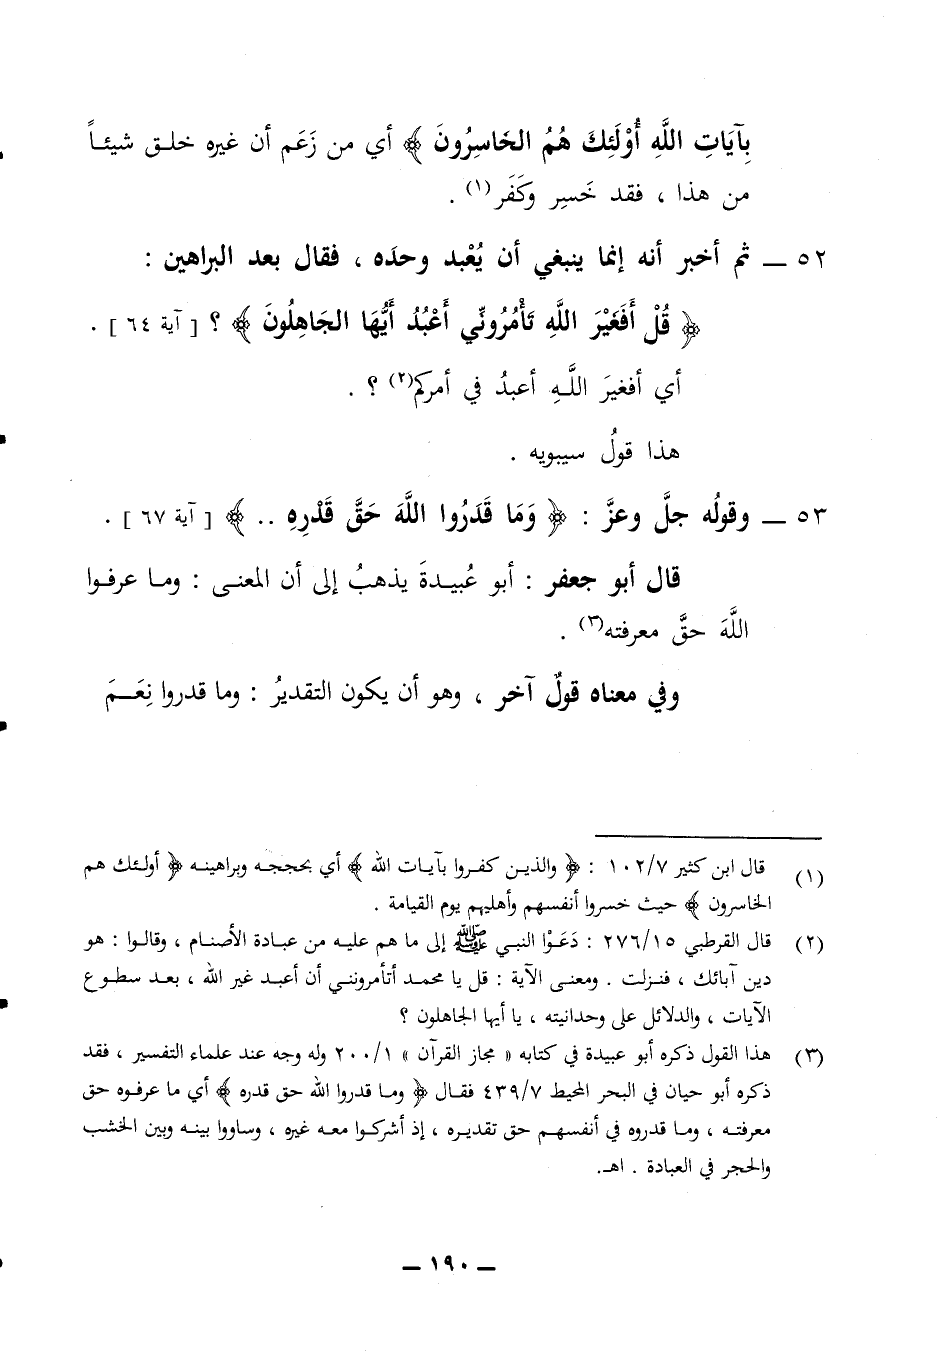 بِآيَاتِ اللَّهِ أُوْلَئِكَ هُمُ الخَاسِرُونَ ﴾ أي من زَعَم أن غيره خلـق شيئـاً
من هذا ، فقد خَسِر وكَفَر(١) .
٥٢ ــ ثم أخبر أنه إنما ينبغي أن يُعْبد وحدَه ، فقال بعد البراهين :
﴿ قُلْ أَفَغَيْرَ اللَّهِ تَأْمُرُونِّي أَعْبُدُ أَيُّهَا الجَاهِلُونَ ﴾ ؟ [ آية ٦٤ ] .
أي أفغيرَ اللَّـهِ أعبدُ في أمركم(٢) ؟ .
هذا قولُ سيبويه .
٥٣ ــ وقولُه جلَّ وعزَّ : ﴿ وَمَا قَدَرُوا اللَّهَ حَقَّ قَدْرِهِ .. ﴾ [ آية ٦٧ ] .
قال أبو جعفر : أبو عُبيـدةَ يذهبُ إلى أن المعنـى : ومـا عرفـوا
اللَّهَ حقَّ معرفته(٣) .
وفي معناه قولٌ آخر ، وهو أن يكون التقديرُ : وما قدروا نِعَـمَ
(١) قال ابن كثير ١٠٢/٧ : ﴿ والذيـن كفـروا بآيـات الله ﴾ أي بحججـه وبراهينـه ﴿ أولـئك هم
الخاسرون ﴾ حيث خسروا أنفسهم وأهليهم يوم القيامة .
(٢) قال القرطبي ٢٧٦/١٥ : دَعَوْا النبي ﷺ إلى ما هم عليـه من عبـادة الأصنـام ، وقالـوا : هو
دين آبائك ، فنـزلت . ومعنـى الآية : قل يا محمـد أتأمرونـني أن أعبـد غير الله ، بعـد سطـوع
الآيات ، والدلائل على وحدانيته ، يا أيها الجاهلون ؟
(٣) هذا القول ذكره أبو عبيدة في كتابه « مجاز القرآن » ٢٠٠/١ وله وجه عند علماء التفسير ، فقد
ذكره أبو حيان في البحر المحيط ٤٣٩/٧ فقـال ﴿ ومـا قدروا الله حق قدره ﴾ أي ما عرفـوه حق
معرفتـه ، ومـا قدروه في أنفسهـم حق تقديـره ، إذ أشركـوا معـه غيره ، وساووا بينـه وبين الخشب
والحجر في العبادة . اهـ.
ــ ١٩٠ ــ